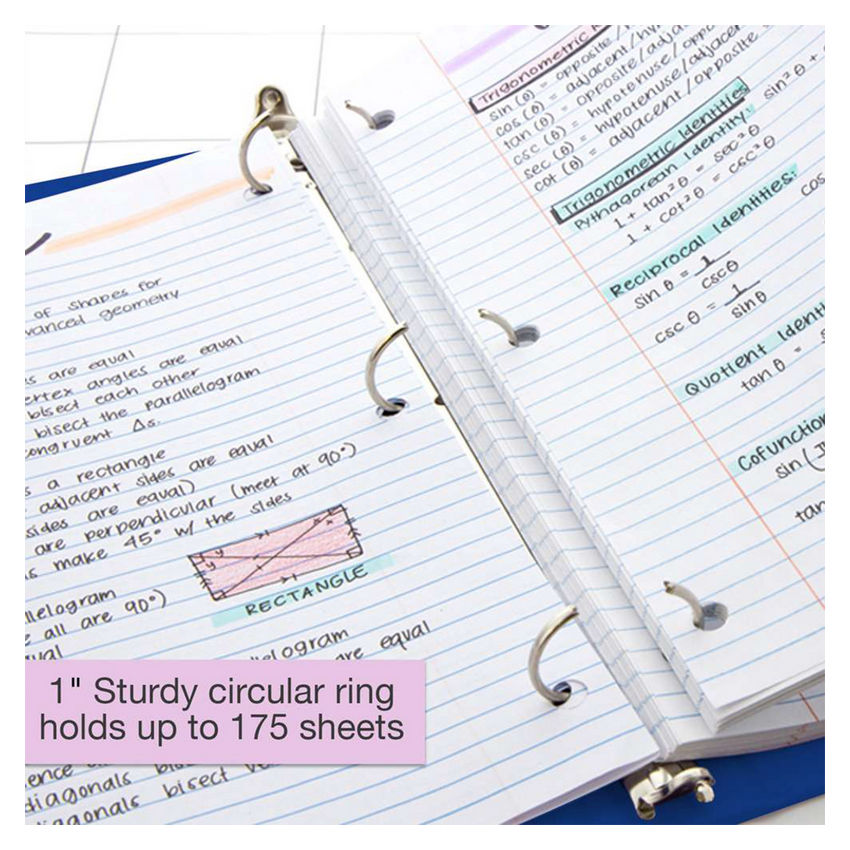 of shapes for
vanced geometry
s are equal
rtex angles are equal
bisect each other
bisect the parallelogram
ongruent Δs.
s a rectangle
adjacent sides are equal
sides are equal)
are perpendicular (meet at 90°)
s make 45° w/ the sides
RECTANGLE
llelogram
e all are 90°)
ual
lelogram
are equal
1" Sturdy circular ring
holds up to 175 sheets
ence
diagonals
diagonals bisect
Trigonometric
sin (θ) = opposite/
cos (θ) = adjacent/hy
tan (θ) = opposite/adja
csc (θ) = hypotenuse/oppo
sec (θ) = hypotenuse/adjacen
cot (θ) = adjacent/opposite
Trigonometric Identities
Pythagorean Identity: sin²θ +
1 + tan²θ = sec²θ
1 + cot²θ = csc²θ
Reciprocal Identities:
sin θ = 1/cscθ cos
csc θ = 1/sinθ
Quotient Identi
tan θ =
Cofunction
sin(
tan